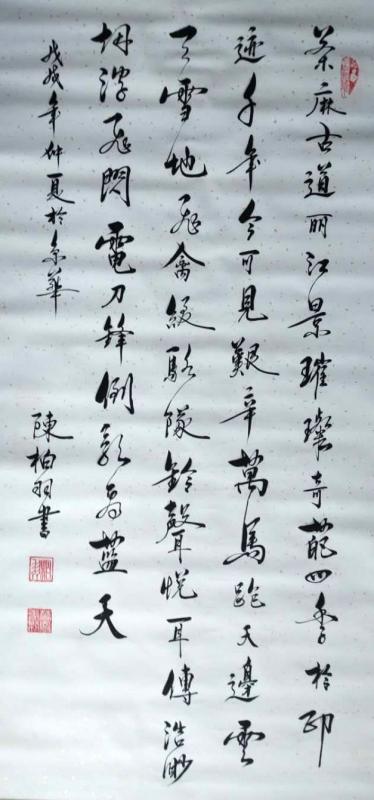 茶麻古道丽江景璀璨奇葩四季於印
迹千年今可见艱辛萬馬跑天邊雲
天雪地飛禽緩駱隊鈴聲耳悦耳傳浩渺
飛閃電刀鋒倒影為藍天
戊戌年仲夏於京華
陳柏羽書